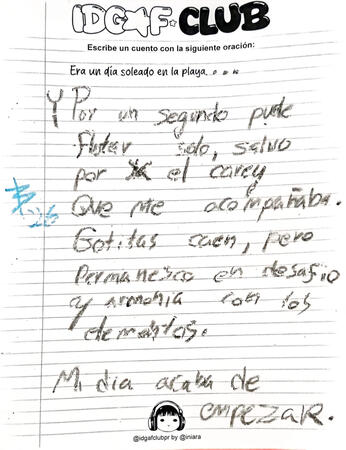 IDGAF.CLUB
Escribe un cuento con la siguiente oración:
Era un día soleado en la playa......
Y Por un segundo pude
flotar solo, salvo
por el carey
Que me acompañaba.
Gotitas caen, pero
Permanesco en desafio
y armonia con los
elementos.
Mi dia acaba de
empezar.
@idgafclubpr by @iniara